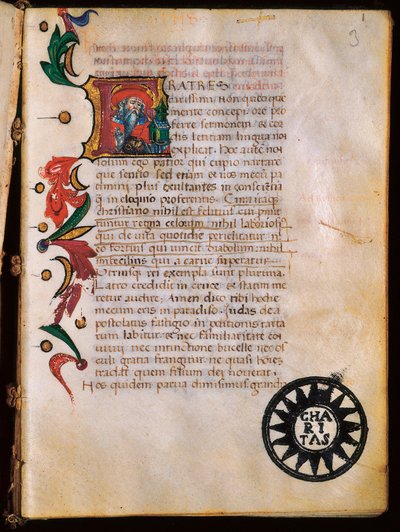 3
RATRES
karissimi non queo que
mente concepi ore pro
ferre sermonem & cor
dis letitiam lingua no
explicit. Hoc aute no
solum ego patior qui cupio narrare
que sentio sed etiam et vos mecum pa
timini plus exultantes in conscientia
q in eloquio proferentis. Cum itaq
christiano nihil est felicius cui pmit
tuntur regna celorum nihil laboriosi
qui de vita quotidie periclitatur ni
fortius qui vincit diabolum nihil
imbecilius qui a carne superatur.
Utriusq rei exempla sunt plurima.
Latro credidit in cruce & statim me
retur audire; Amen dico tibi hodie
mecum eris in paradiso. Iudas de a
postolatus fastigio in tarta
rum labitur & nec familiaritate co
vivii nec intinctione bucelle nec os
culi gratia frangitur ne quasi
tradat quem filium dei noverat.
Hos quidem parva dimisimus grandi
CHA
RI
TAS